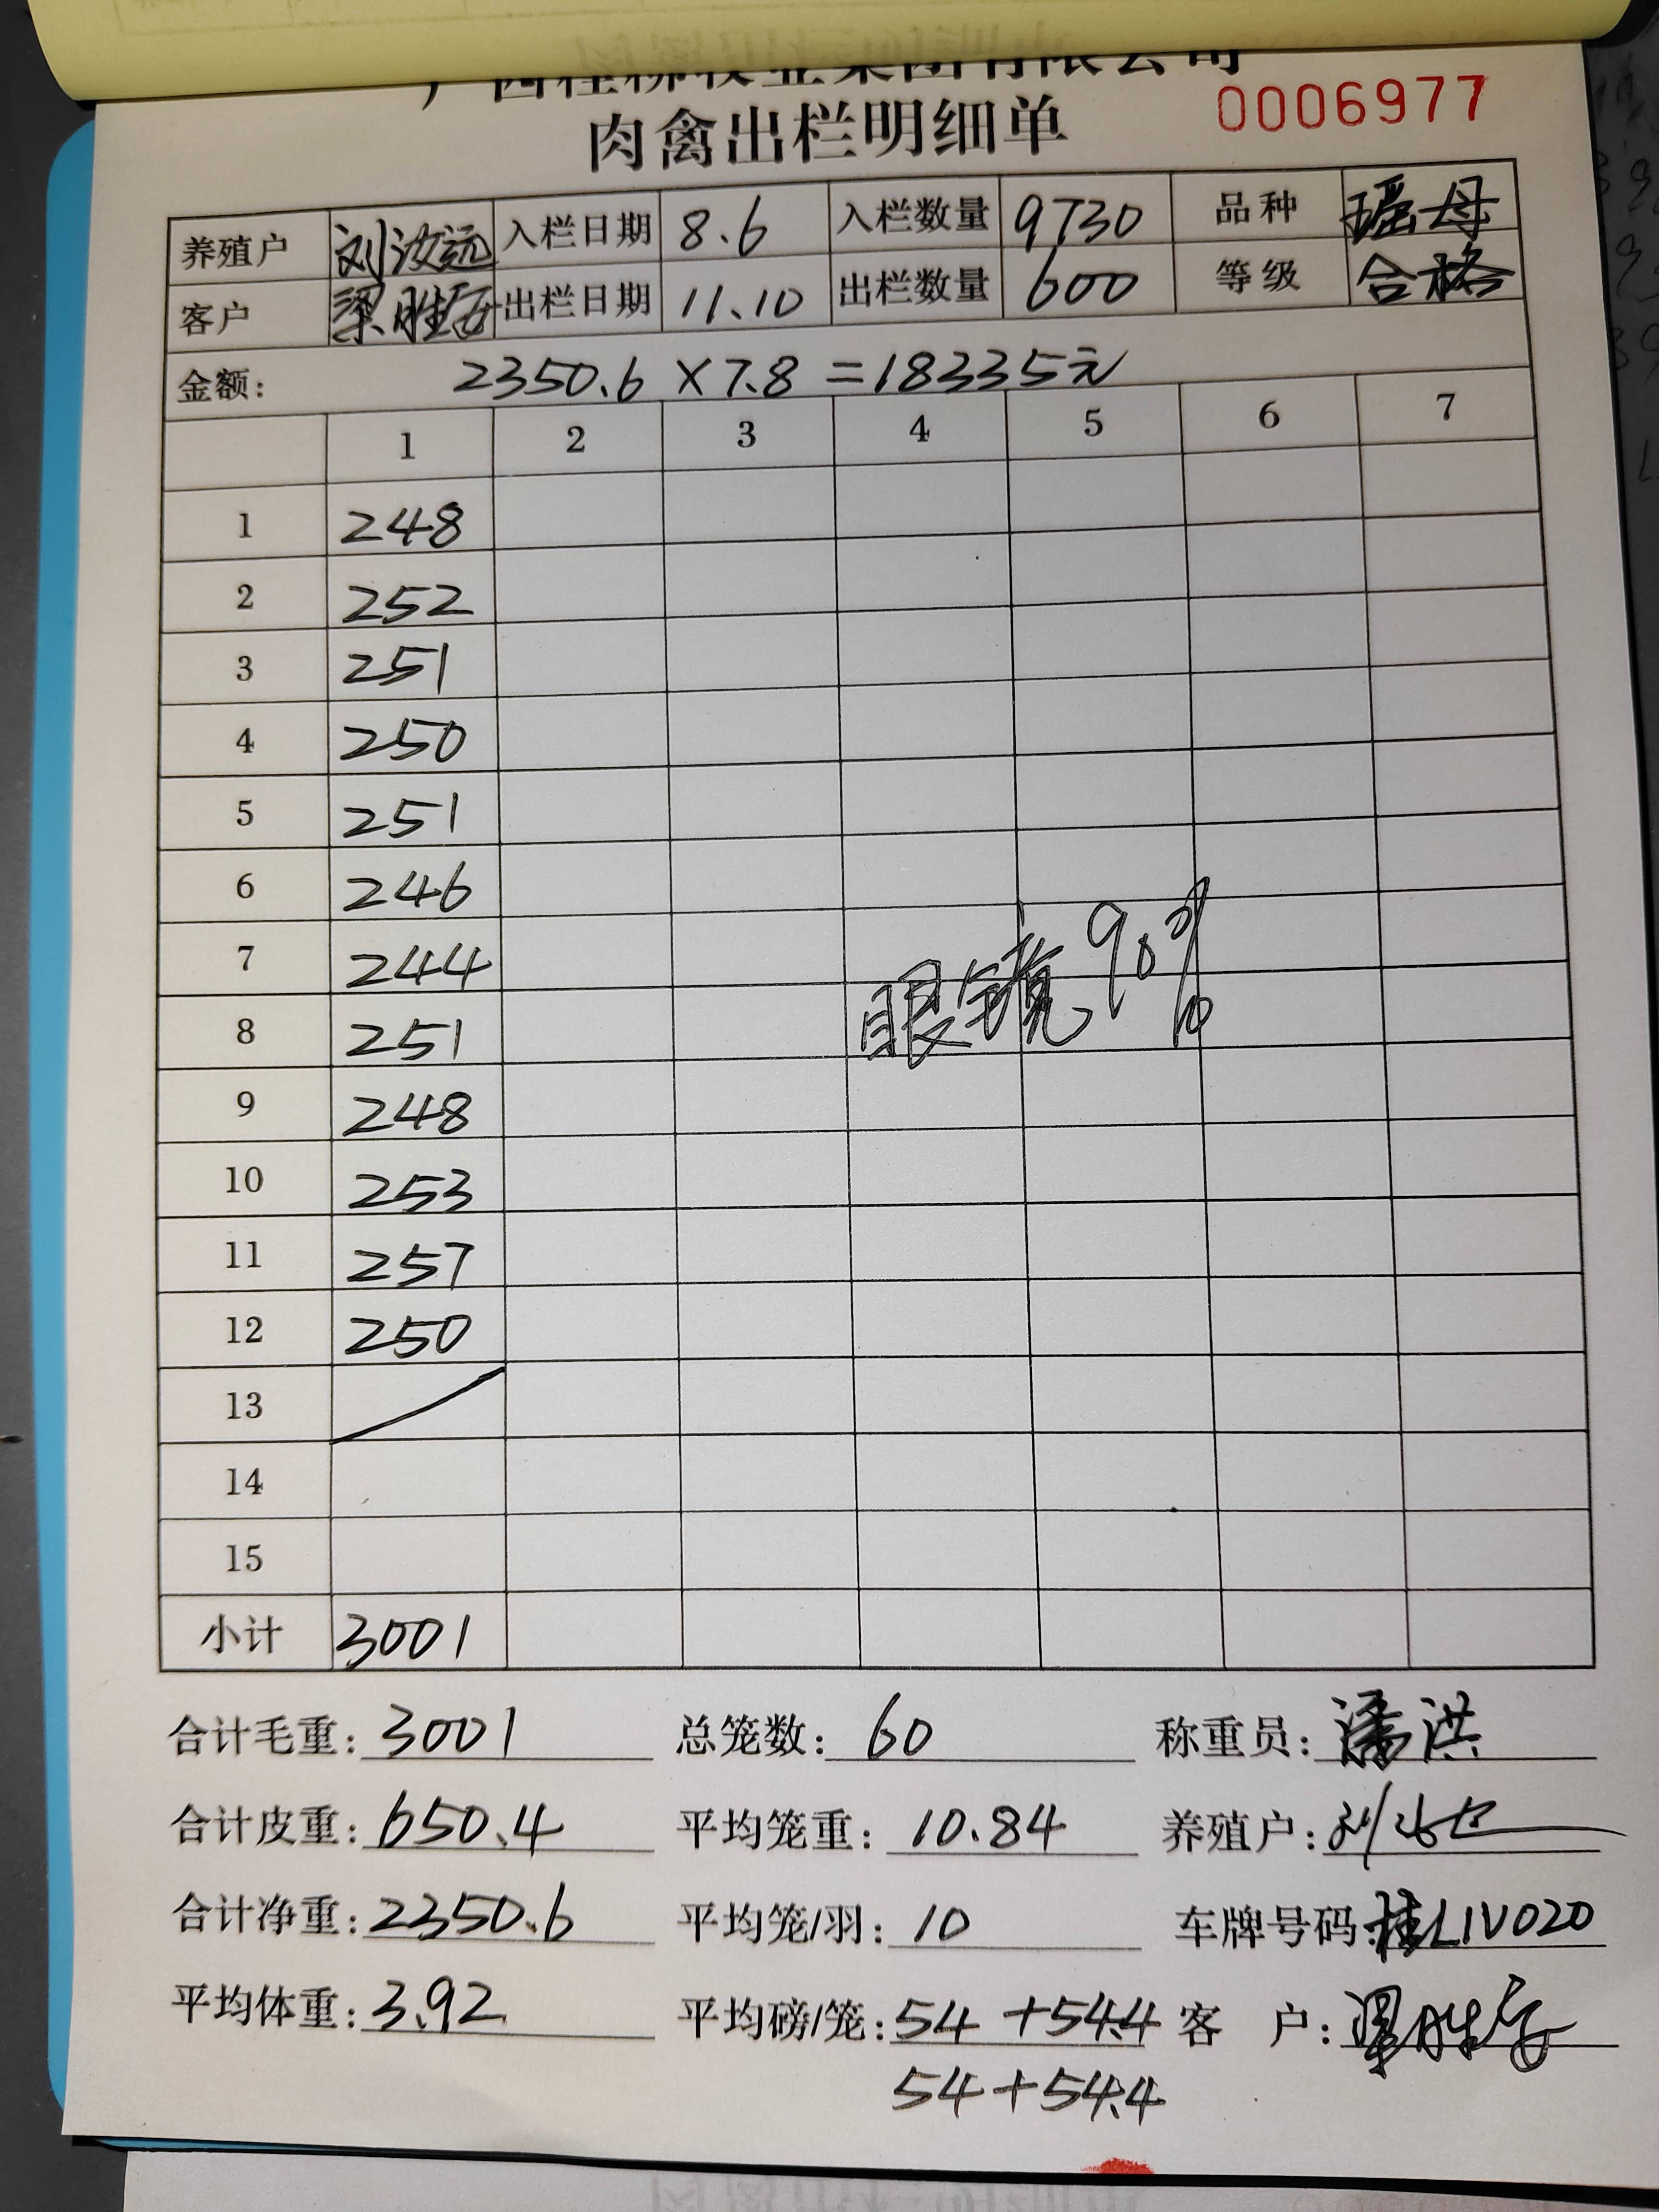 广西桂柳牧业集团有限公司
肉禽出栏明细单 0006977
养殖户 刘汝远 入栏日期 8.6 入栏数量 9730 品种 瑶母
客户 梁胜 出栏日期 11.10 出栏数量 600 等级 合格
金额: 2350.6×7.8=18335元
1 2 3 4 5 6 7
1 248
2 252
3 251
4 250
5 251
6 246
7 244
眼镜90%
8 251
9 248
10 253
11 257
12 250
13
14
15
小计 3001
合计毛重: 3001 总笼数: 60 称重员: 潘洪
合计皮重: 650.4 平均笼重: 10.84 养殖户:
合计净重: 2350.6 平均笼/羽: 10 车牌号码: 桂L1V020
平均体重: 3.92 平均磅/笼: 54+54.4 客户:
54+54.4